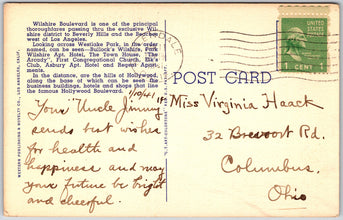 Wilshire Boulevard is one of the principal
thoroughfares passing thru the exclusive Wil-
shire district to Beverly Hills and the Beaches
west of Los Angeles.
Looking across Westlake Park, in fore-
ground, can be seen—Bullock's Wilshire, Park
Wilshire Apt. Hotel, The Town House, "The
Arcady", First Congregational Church, Elk's
Club, Asbury Apt. Hotel and Regent Apart-
ments.
In the distance, are the hills of Hollywood,
along the base of which can be seen the
business buildings, hotels and shops that line
the famous Hollywood Boulevard.
WESTERN PUBLISHING & NOVELTY CO., LOS ANGELES, CALIF.
1/10/41
Your "Uncle Jimmy"
sends best wishes
for health and
happiness and may
your future be bright
and cheerful.
DALE
UNITED STATES
POSTAGE
1 CENT 1
POST CARD
Miss Virginia Haack
32 Brevoort Rd.
Columbus,
Ohio